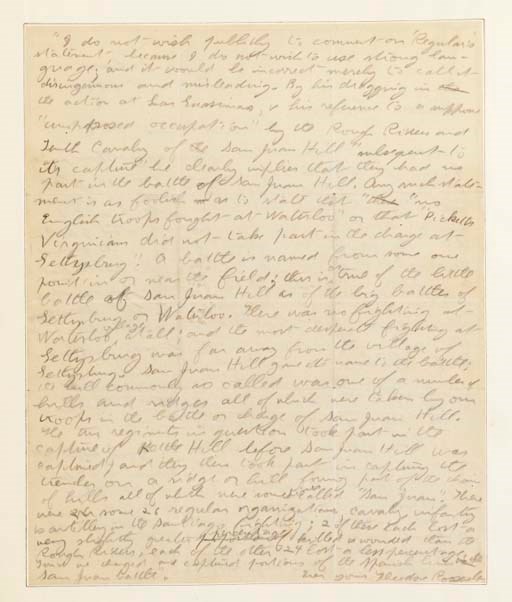 "I do not wish publicly to comment on 'Regular's
statement, because I do not wish to use strong lan-
guage, and it would be incorrect merely to call it
disingenuous and misleading. By his dragging in the
the action at Las Guasimas, & his reference to a
"unopposed occupation" by the Rough Riders and
Tenth Cavalry of the San Juan Hill "subsequent to
its capture" he clearly implies that they had no
part in the battle of San Juan Hill. Any such state-
ment is as foolish as to state that "no
English troops fought at Waterloo" or that Picketts
Virginians did not take part in the charge at
Gettysburg! A battle is named from some one
point in or near the field; this is true of the little
battle of San Juan Hill as of the big battles of
Gettysburg or Waterloo. There was no fighting at
Waterloo at all; and the most desperate fighting at
Gettysburg was far away from the village of
Gettysburg. San Juan Hill gave its name to the battle;
the hill commonly so called was one of a number of
hills and ridges all of which were taken by our
troops in the battle or charge of San Juan Hill.
The regiments in question took part in the
capture of Kettle Hill before San Juan Hill was
captured, and they then took part in capturing the
a ridge or hill forming part of the chain
of hills all of which were called "San Juan". There
were some 26 regular organizations, cavalry, infantry
artillery in the Santiago fighting; 2 of these each lost a
very slightly greater killed & wounded than the
Rough Riders, each of the other 24 lost a less percentage.
we charged and captured portions of the Spanish lines in the
San Juan battle.
Very yours Theodore Roosevelt